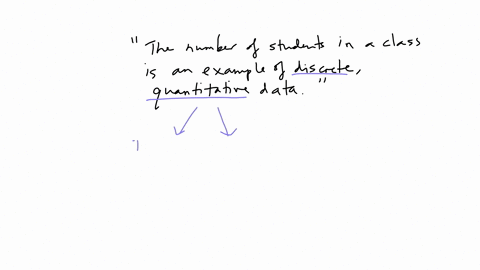 " The number of students in a class
is an example of discrete,
quantitative data. "